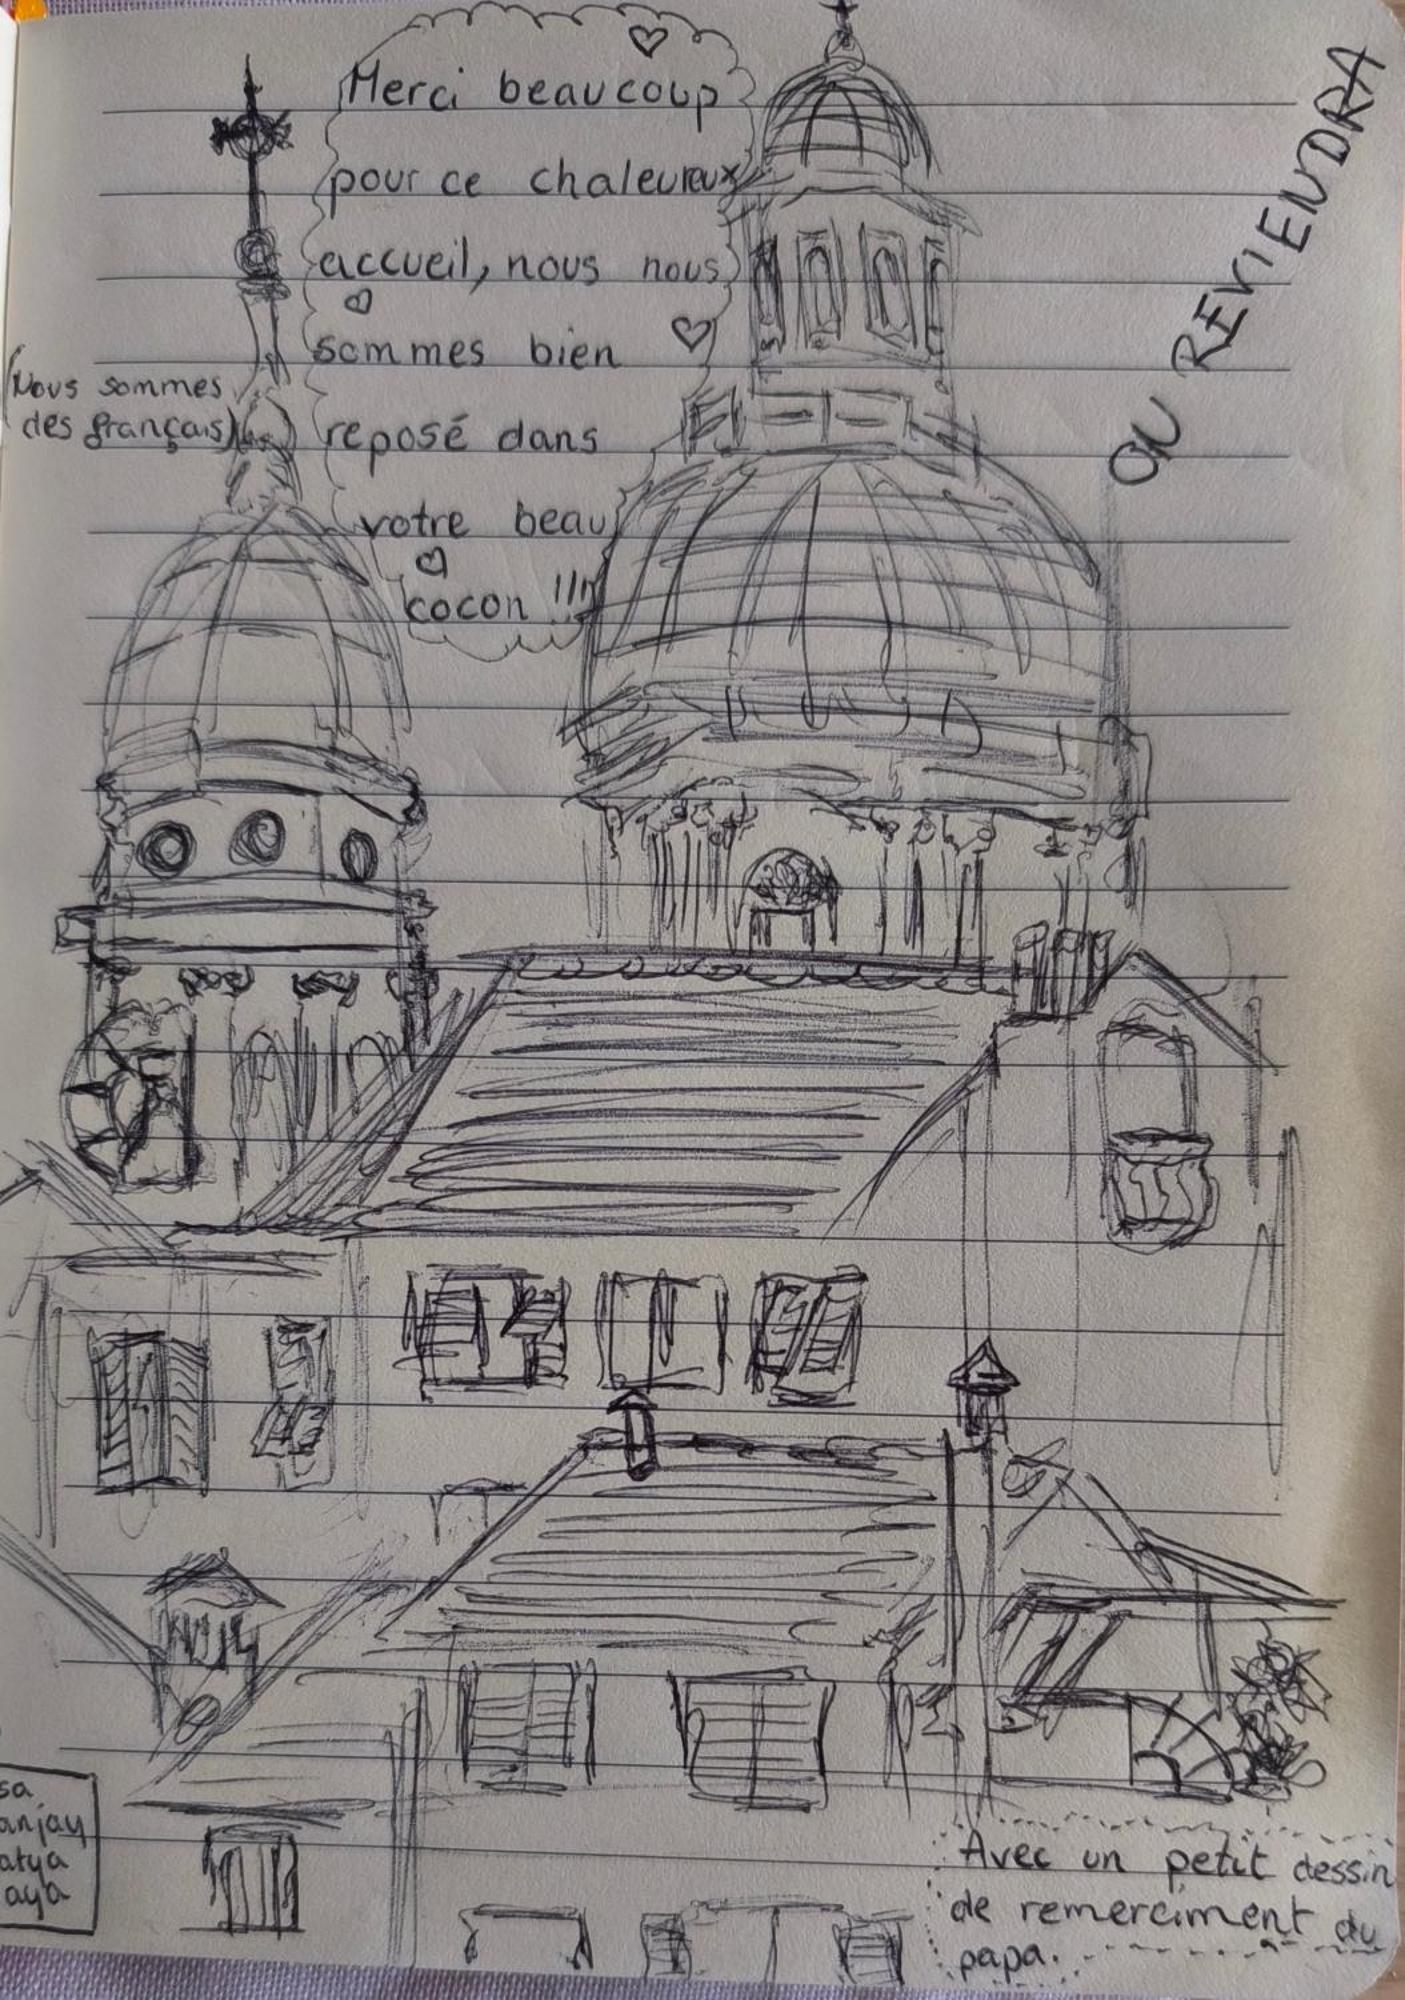 Merci beaucoup
pour ce chaleureux
accueil, nous nous
sommes bien
reposé dans
votre beau
cocon !!!
(Nous sommes
des français)
ON REVIENDRA
sa
anjay
atya
aya
Avec un petit dessin
de remerciment du
papa.